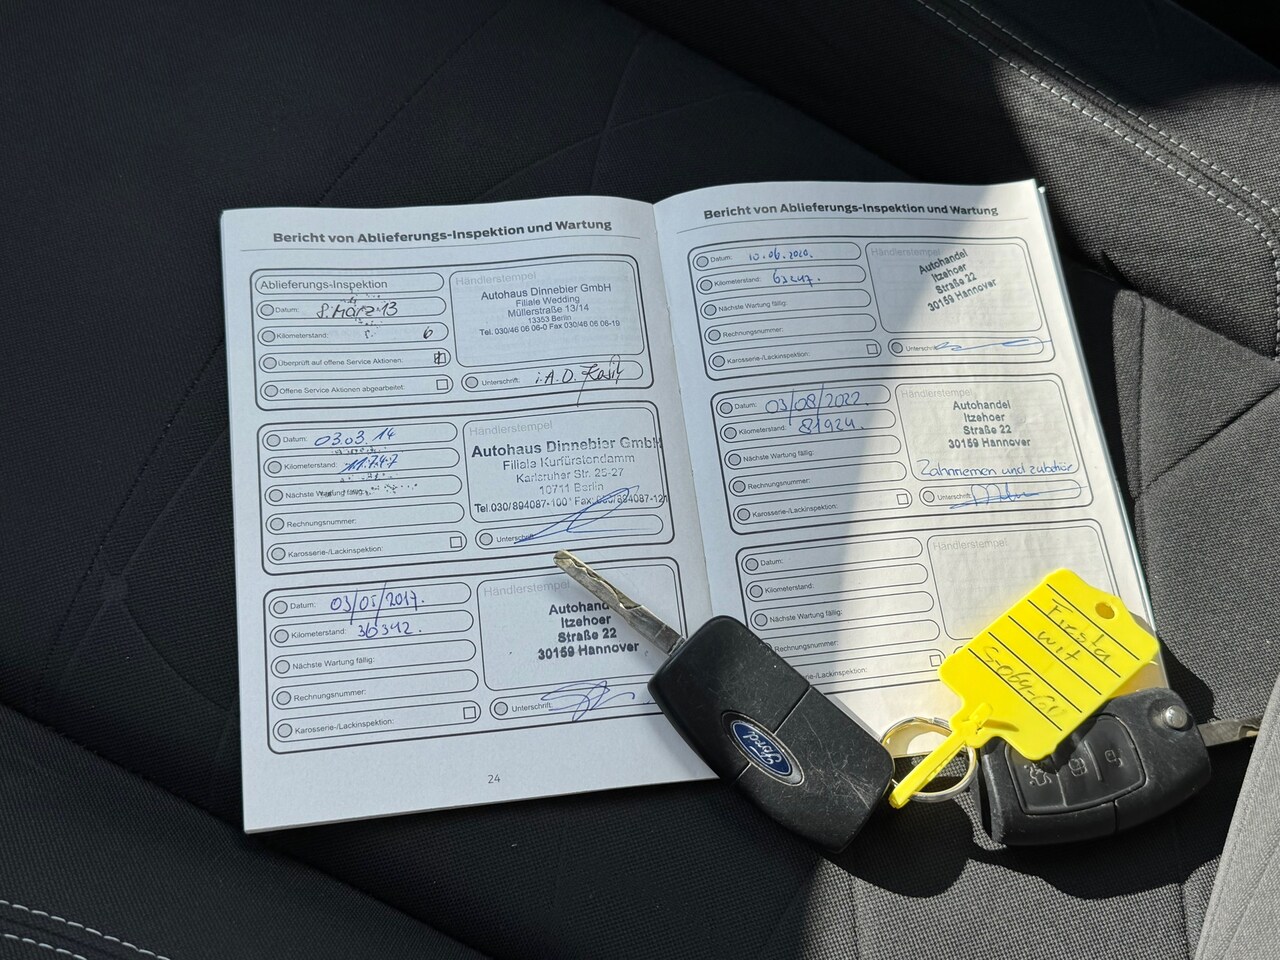 Bericht von Ablieferungs-Inspektion und Wartung
Ablieferungs-Inspektion
Datum: 8. März 13
Kilometerstand: 6
Überprüft auf offene Service Aktionen:
Offene Service Aktionen abgearbeitet:
Händlerstempel
Autohaus Dinnebier GmbH
Filiale Wedding
Müllerstraße 13/14
13353 Berlin
Tel. 030/46 06 06-0 Fax 030/46 06 06-19
Unterschrift: i.A.D.
Datum: 03.03.14
Kilometerstand: 11.747
Nächste Wartung fällig:
Rechnungsnummer:
Karosserie-/Lackinspektion:
Händlerstempel
Autohaus Dinnebier GmbH
Filiale Kurfürstendamm
Karlsruher Str. 25-27
10711 Berlin
Tel.030/894087-100* Fax 030/894087-121
Unterschrift:
Datum: 03/05/2017.
Kilometerstand: 36392.
Nächste Wartung fällig:
Rechnungsnummer:
Karosserie-/Lackinspektion:
Händlerstempel
Autohandel
Itzehoer
Straße 22
30159 Hannover
Unterschrift:
24
Bericht von Ablieferungs-Inspektion und Wartung
Datum: 10.06.2020.
Kilometerstand: 63247.
Nächste Wartung fällig:
Rechnungsnummer:
Karosserie-/Lackinspektion:
Händlerstempel
Autohandel
Itzehoer
Straße 22
30159 Hannover
Unterschrift:
Datum: 03/08/2022.
Kilometerstand: 81924.
Nächste Wartung fällig:
Rechnungsnummer:
Karosserie-/Lackinspektion:
Händlerstempel
Autohandel
Itzehoer
Straße 22
30159 Hannover
Zahnriemen und zubehör
Unterschrift:
Datum:
Kilometerstand:
Nächste Wartung fällig:
Rechnungsnummer:
Karosserie-/Lackinspektion:
Händlerstempel
Ford
Fiesta
wit